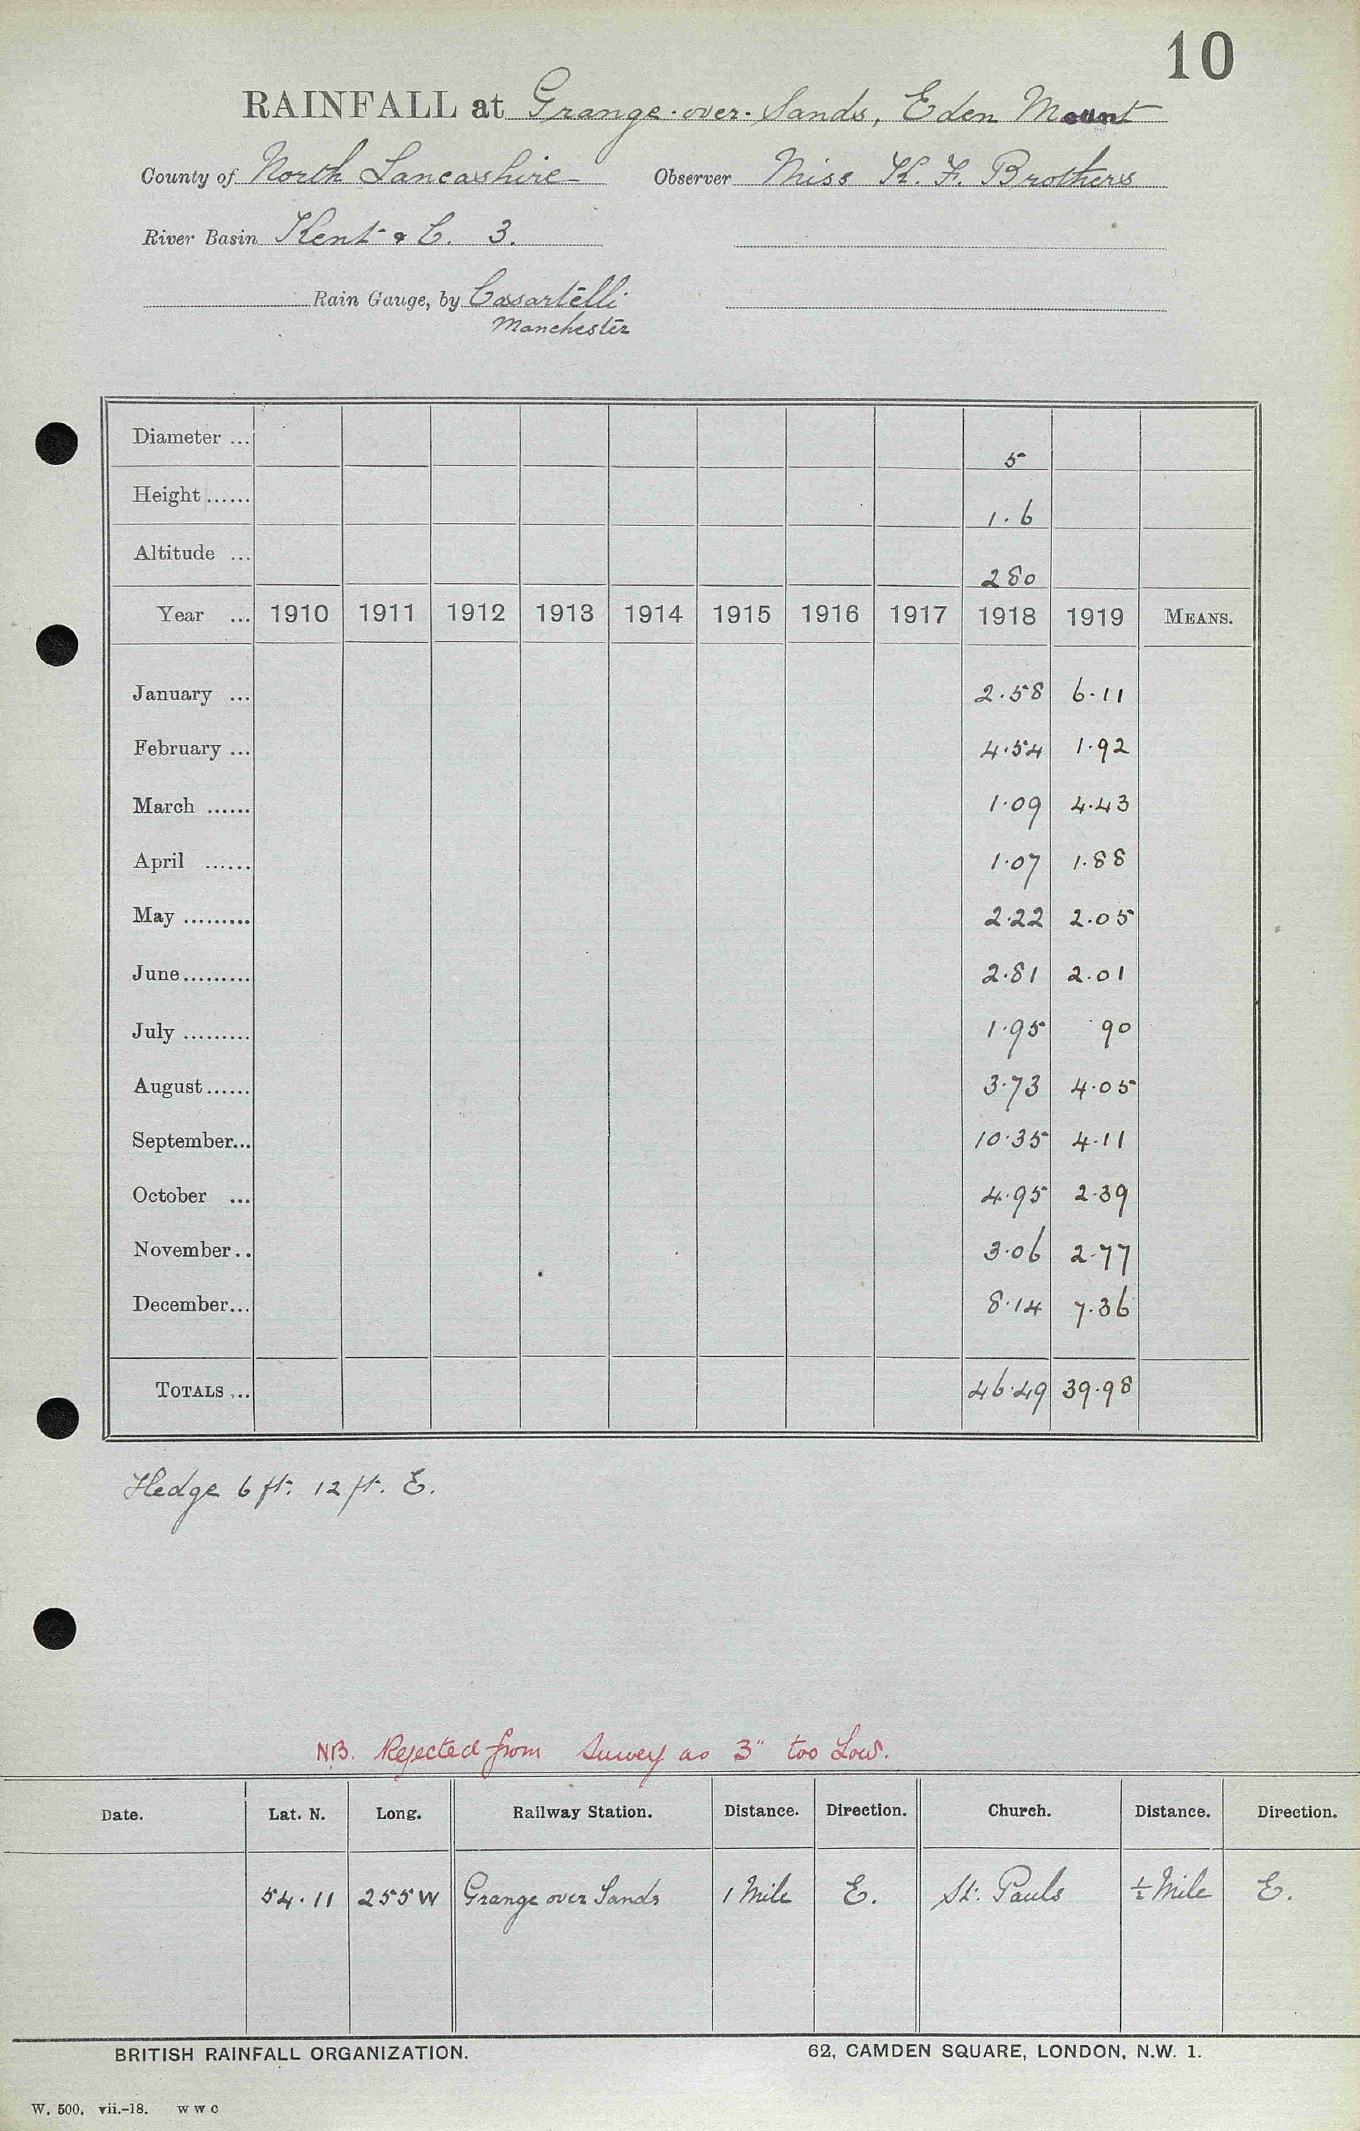 10
RAINFALL at Grange-over-Sands, Eden Mount
County of North Lancashire Observer Miss K. F. Brothers
River Basin Kent & C. 3.
Rain Gauge, by Casartelli
Manchester
Diameter ... 5
Height...... 1.6
Altitude ... 280
Year ... 1910 1911 1912 1913 1914 1915 1916 1917 1918 1919 MEANS.
January ... 2.58 6.11
February ... 4.54 1.92
March ...... 1.09 4.43
April ...... 1.07 1.88
May ......... 2.22 2.05
June......... 2.81 2.01
July ......... 1.95 .90
August...... 3.73 4.05
September... 10.35 4.11
October ... 4.95 2.39
November.. 3.06 2.77
December... 8.14 7.36
TOTALS ... 46.49 39.98
Hedge 6 ft. 12 ft. E.
NB. Rejected from Survey as 3" too Low.
Date. Lat. N. Long. Railway Station. Distance. Direction. Church. Distance. Direction.
54.11 255W Grange over Sands 1 Mile E. St. Pauls ½ Mile E.
BRITISH RAINFALL ORGANIZATION. 62, CAMDEN SQUARE, LONDON, N.W. 1.
W. 500. vii.-18. W W C